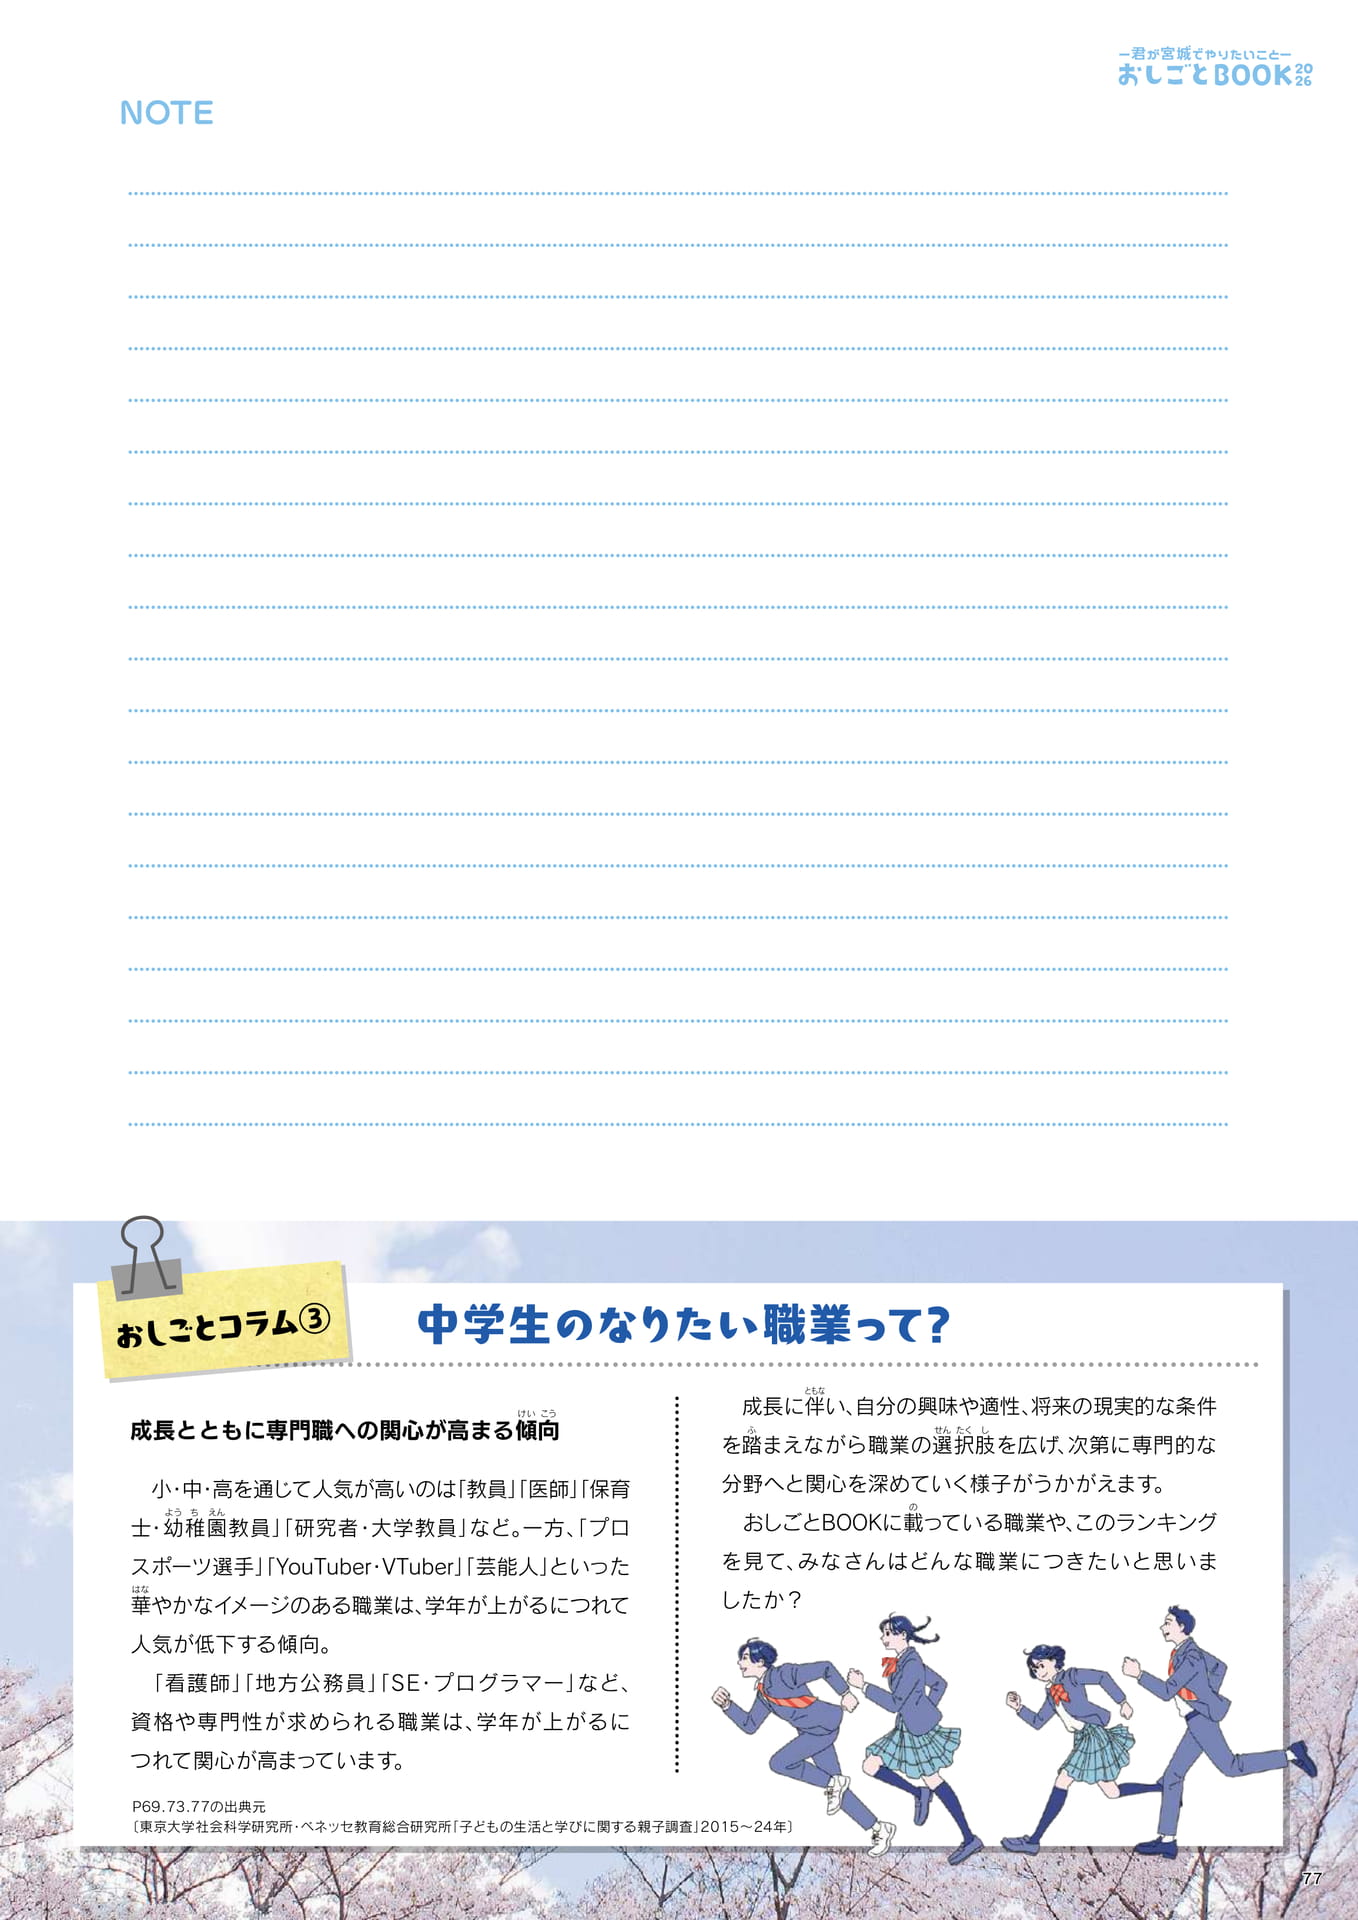 ー君が宮城でやりたいことー
おしごとBOOK2026
NOTE
おしごとコラム③
中学生のなりたい職業って?
成長とともに専門職への関心が高まる傾向
小・中・高を通じて人気が高いのは「教員」「医師」「保育
士・幼稚園教員」「研究者・大学教員」など。一方、「プロ
スポーツ選手」「YouTuber・VTuber」「芸能人」といった
華やかなイメージのある職業は、学年が上がるにつれて
人気が低下する傾向。
「看護師」「地方公務員」「SE・プログラマー」など、
資格や専門性が求められる職業は、学年が上がるに
つれて関心が高まっています。
成長に伴い、自分の興味や適性、将来の現実的な条件
を踏まえながら職業の選択肢を広げ、次第に専門的な
分野へと関心を深めていく様子がうかがえます。
おしごとBOOKに載っている職業や、このランキング
を見て、みなさんはどんな職業につきたいと思いま
したか?
P69.73.77の出典元
〔東京大学社会科学研究所・ベネッセ教育総合研究所「子どもの生活と学びに関する親子調査」2015〜24年〕
77